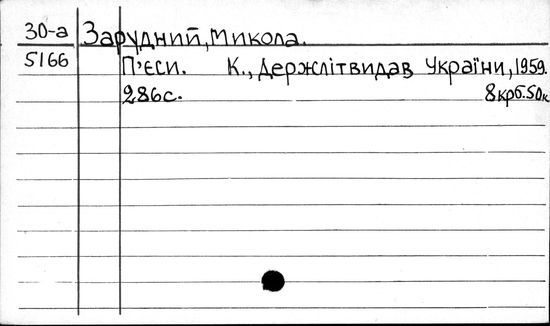 30-а Зарудний, Микола.
5166 П'єси. К., Держлітвидав України, 1959.
286с. 8крб.50к